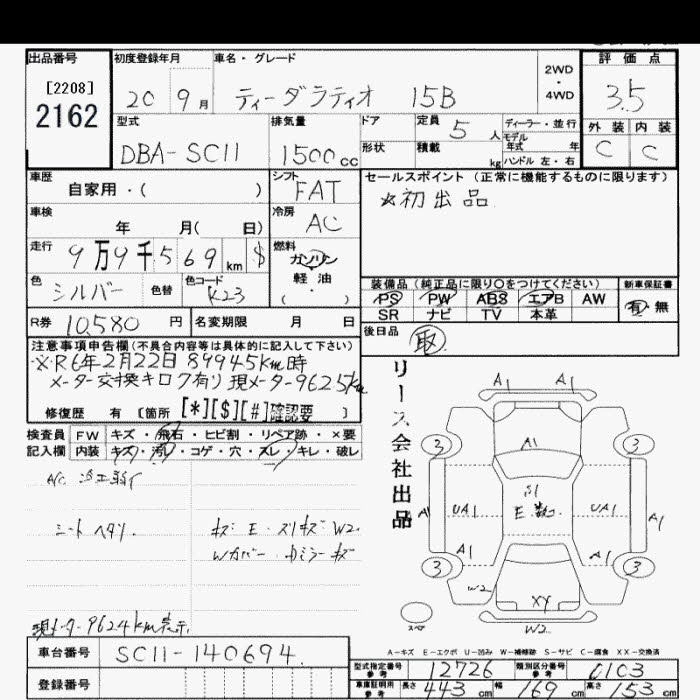 出品番号
[2208]
2162
初度登録年月
20 9月
車名・グレード
ティーダラティオ 15B
2WD
・
4WD
評価点
3.5
外装 内装
C C
型式
DBA-SC11
排気量
1500cc
ドア
形状
定員 5人
積載 kg
ディーラー・並行
モデル年式 年
ハンドル 左・右
車歴
自家用・( )
シフト
FAT
セールスポイント(正常に機能するものに限ります)
☆初出品
車検
年 月( 日)
冷房
AC
走行
9万9千569km $
燃料
ガソリン
軽・油
( ・ )
色
シルバー
色替
色コード
K23
装備品(純正品に限り○をつけてください)
PS PW ABS エアB AW
SR ナビ TV 本革
新車保証書
有・無
R券 10,580円
名変期限 月 日
後日品
取
注意事項申告欄(不具合内容等は具体的に記入して下さい)
※R6年2月22日 89945km時
メーター交換キロク有り 現メーター9625km
修復歴 有 [箇所 [*][$][#]確認要 ]
リース会社出品
検査員記入欄
FW キズ・飛石・ヒビ割・リペア跡・×要
内装 キズ・汚レ・コゲ・穴・スレ・キレ・破レ
シートヘタリ.
キズ・E・スリキズ W2.
現メーター9624km表示.
A1 A1
3 A1 3
S1
E.数コ
A1 UA1 UA1 A1
A1 A1
3 3
W2
XY
W2
スペア
A-キズ E-エクボ U-凹み W-補修跡 S-サビ C-腐食 XX-交換済
車台番号
SC11-140694.
登録番号
型式指定番号
参考
12726
類別区分番号
参考
0103
車庫証明用
参考
長さ 443cm 幅 169cm 高さ 153cm